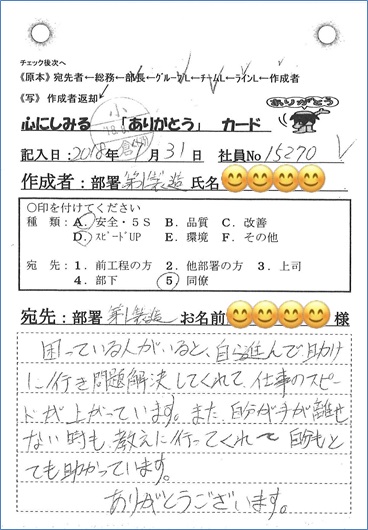 チェック後次へ
《原本》宛先者←総務←部長←グループL←チームL←ラインL←作成者
《写》作成者返却
ありがとう
心にしみる 「ありがとう」 カード
記入日:2018年 月31日 社員No 15270
作成者:部署 第1製造 氏名
○印を付けてください
種類:A.安全・5S B.品質 C.改善
D.スピードUP E.環境 F.その他
宛先:1.前工程の方 2.他部署の方 3.上司
4.部下 5.同僚
宛先:部署 第1製造 お名前 様
困っている人がいると、自ら進んで助け
に行き問題解決してくれて、仕事のスピー
ドが上がっています。また、自分が手が離せ
ない時も、教えに行ってくれて 自分もと
ても助かっています。
ありがとうございます。